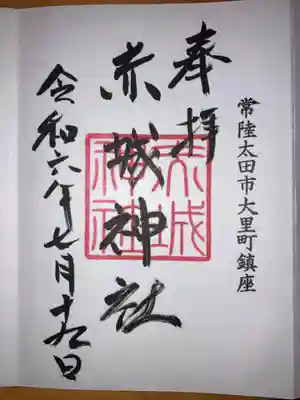 常陸太田市大里町鎮座
奉拝
赤城神社
令和六年七月十九日